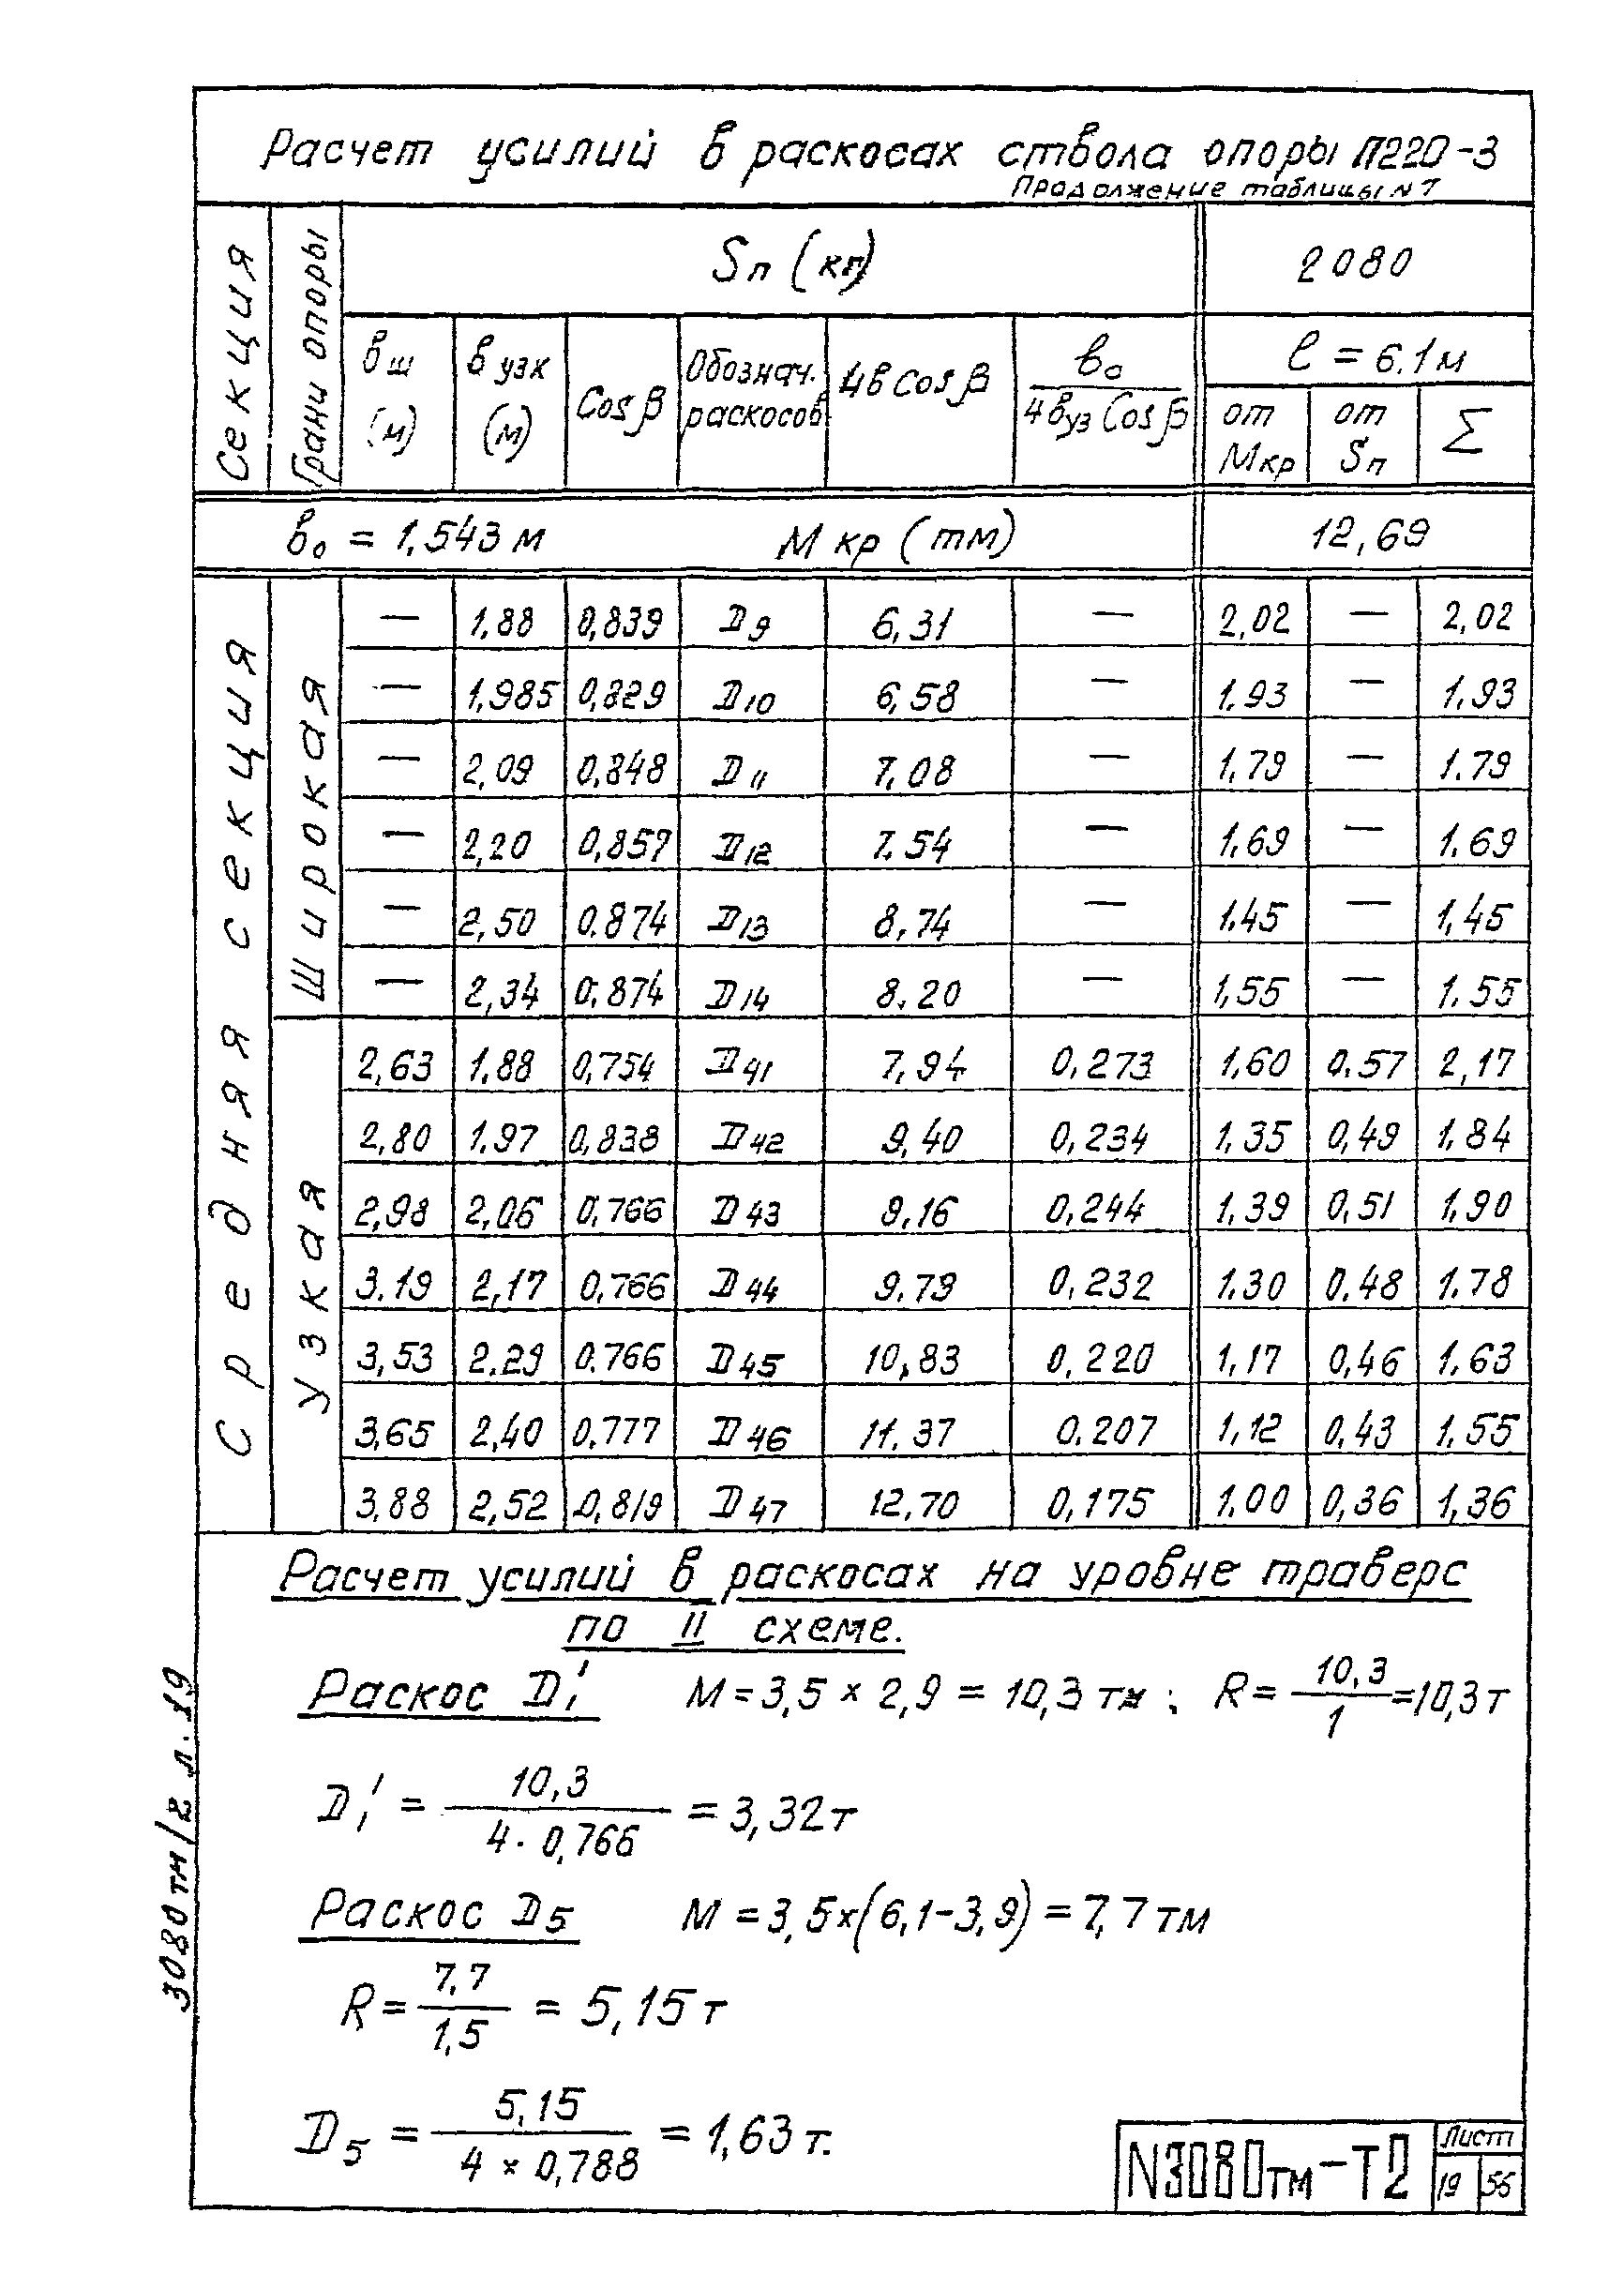 Расчет усилий в раскосах ствола опоры П220-3
Продолжение таблицы N7
Секция
Грани опоры
Sп (кг)
2080
вш (м)
вузк (м)
Cos β
Обознач. раскосов
4в Cos β
в₀ / 4вуз Cos β
ℓ = 6.1м
от Мкр
от Sп
Σ
в₀ = 1,543м Мкр (тм) 12,69
Средняя секция
Широкая
— 1,88 0,839 D9 6,31 — 2,02 — 2,02
— 1,985 0,829 D10 6,58 — 1,93 — 1,93
— 2,09 0,848 D11 7,08 — 1,79 — 1.79
— 2,20 0,857 D12 7.54 — 1,69 — 1.69
— 2,50 0.874 D13 8,74 — 1,45 — 1,45
— 2,34 0.874 D14 8.20 — 1,55 — 1.55
Узкая
2,63 1,88 0,754 D41 7,94 0,273 1,60 0.57 2,17
2,80 1.97 0,838 D42 9,40 0,234 1,35 0,49 1,84
2,98 2,06 0,766 D43 9,16 0,244 1,39 0,51 1,90
3.19 2,17 0,766 D44 9.79 0,232 1,30 0.48 1.78
3,53 2.29 0.766 D45 10,83 0,220 1,17 0,46 1,63
3,65 2,40 0.777 D46 11.37 0.207 1,12 0,43 1,55
3,88 2,52 0,819 D47 12,70 0,175 1,00 0,36 1,36
Расчет усилий в раскосах на уровне траверс
по II схеме.
Раскос D₁' М = 3,5 × 2,9 = 10,3 тм; R = 10,3 / 1 = 10,3т
D₁' = 10,3 / 4 · 0,766 = 3,32т
Раскос D5 М = 3,5×(6,1-3,9) = 7,7тм
R = 7,7 / 1,5 = 5,15т
D5 = 5,15 / 4 × 0,788 = 1,63т.
3080тм/2 л.19
N3080тм-Т2
Лист
19 56